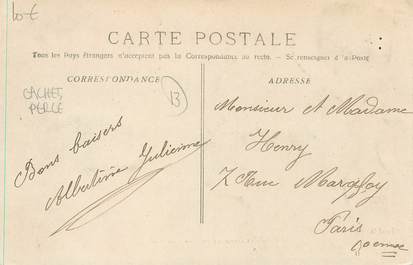 10€
CARTE POSTALE
Tous les Pays étrangers n'acceptent pas la Correspondance au recto. - Se renseigner à la Poste
CORRESPONDANCE
ADRESSE
CACHET
PERLE
13
Bons baisers
Albertine Julienne
Monsieur et Madame
Henry
7 Rue
Paris